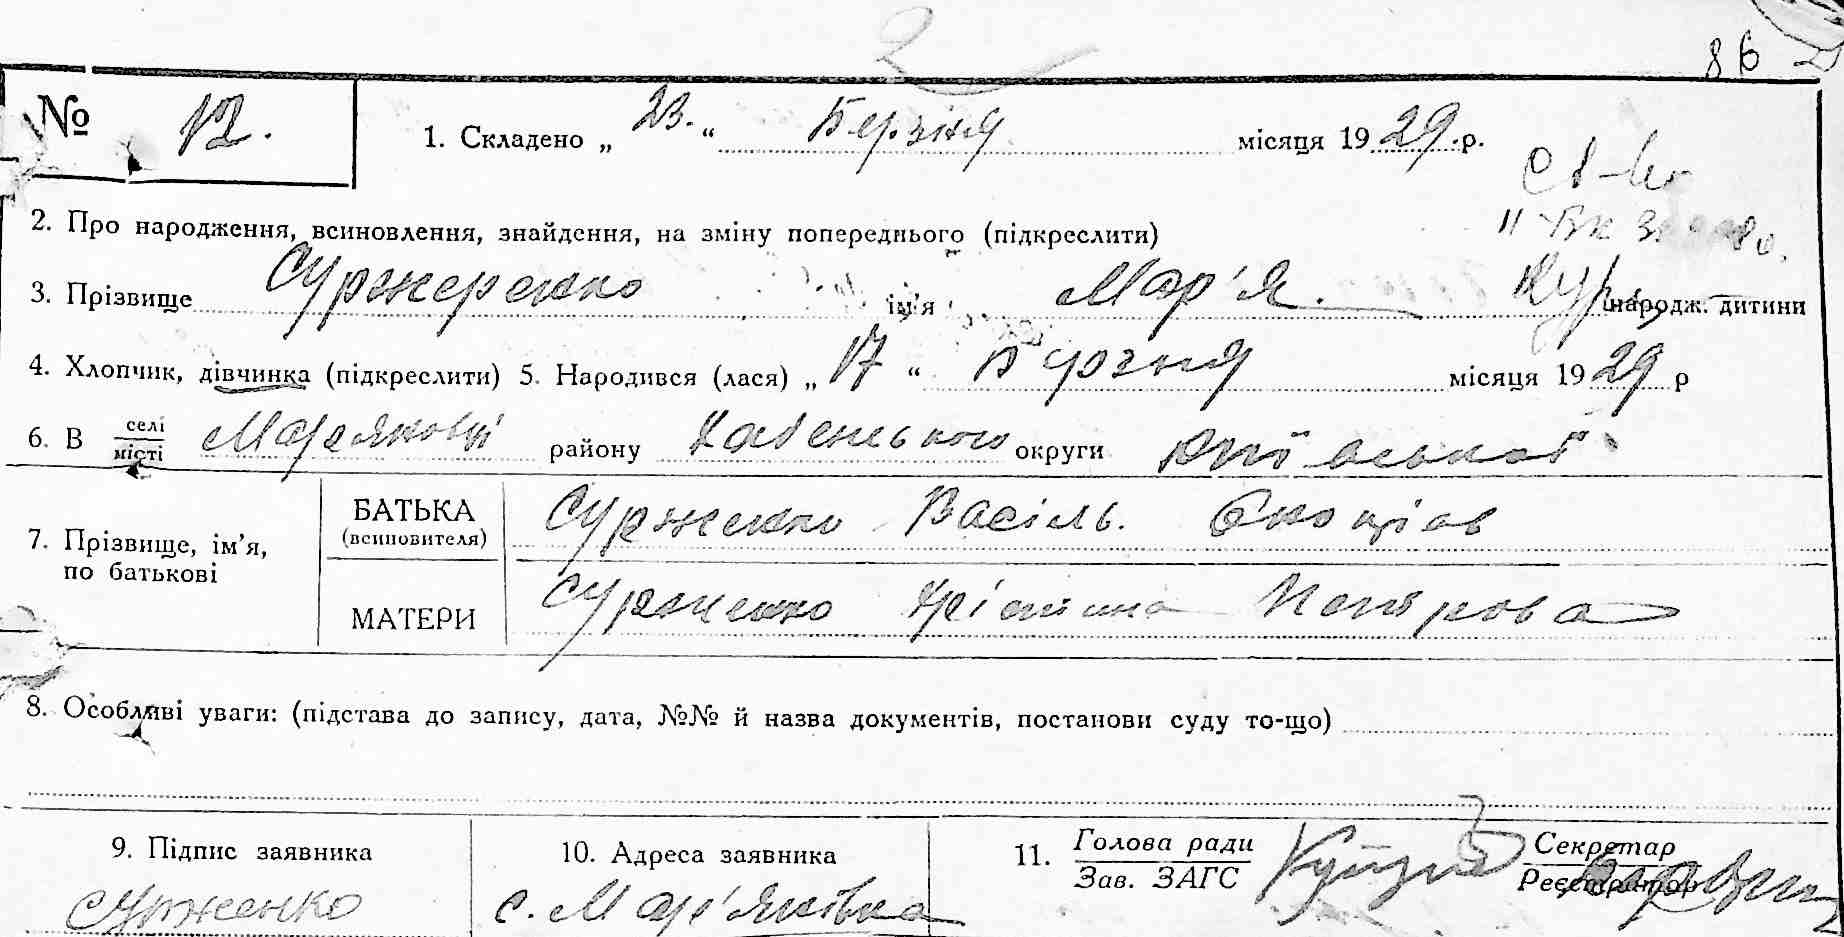 2
86
№ 12. 1. Складено „ 23. “ Берзня місяця 1929 р.
2. Про народження, всиновлення, знайдення, на зміну попереднього (підкреслити)
3. Прізвище Сурженко ім’я Мар'я. народж. дитини
4. Хлопчик, дівчинка (підкреслити) 5. Народився (лася) „ 17 “ Берзня місяця 1929 р
6. В селі місті Мар'яновці району округи
7. Прізвище, ім’я, по батькові
БАТЬКА (всиновителя) Сурженко Васіль.
МАТЕРИ Сурженко Петрова
8. Особливі уваги: (підстава до запису, дата, №№ й назва документів, постанови суду то-що)
9. Підпис заявника 10. Адреса заявника 11. Голова ради Зав. ЗАГС Секретар Реєстратор
Сурженко с. Мар'янівка